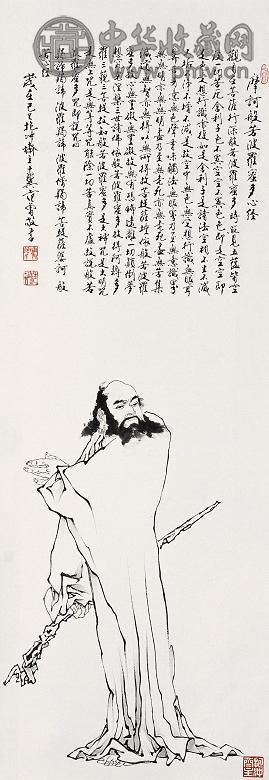 中华收藏网
摩訶般若波羅蜜多心經
觀自在菩薩行深般若波羅蜜多時照見五蘊皆空
度一切苦厄舍利子色不異空空不異色色即是空空即
是色受想行識亦復如是舍利子是諸法空相不生不滅
不垢不淨不增不減是故空中無色無受想行識無眼耳
鼻舌身意無色聲香味觸法無眼界乃至無意識界
無無明亦無無明盡乃至無老死亦無老死盡無苦集
滅道無智亦無得以無所得故菩提薩埵依般若波羅
蜜多故心無罣礙無罣礙故無有恐怖遠離一切顛倒夢
想究竟涅槃三世諸佛依般若波羅蜜多故得阿耨多
羅三藐三菩提故知般若波羅蜜多是大神咒是大明咒
是無上咒是無等等咒能除一切苦真實不虛故說般若
波羅蜜多咒即說咒曰
揭諦揭諦 波羅揭諦 波羅僧揭諦 菩提薩婆訶 般
若心經
歲在己巳 十翼范曾敬書